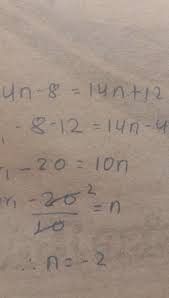 4n-8 = 14n+12
-8-12 = 14n-4
-20 = 10n
-20 2
10 = n
∴ n = -2